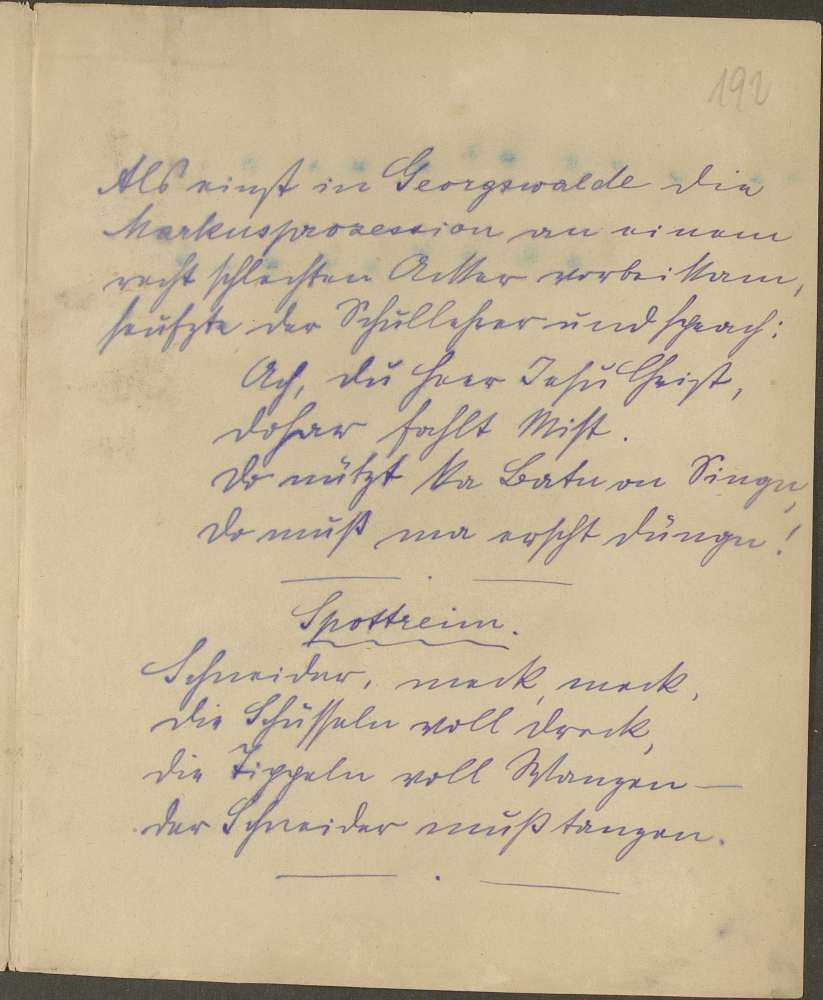 192
Als einst in Georgswalde die
Markusprozession an einem
recht schlechten Acker vorbeikam,
seufzte der Schullehrer und sprach:
Ach, du Herr Jesu Christ,
dohar fahlt Mist.
Do nützt ka Batn on Singn,
do muß ma erscht düngn!
Spottreim.
Schneider, meck, meck,
die Schüsseln voll Dreck,
die Tippeln voll Wanzen —
der Schneider muß tanzen.